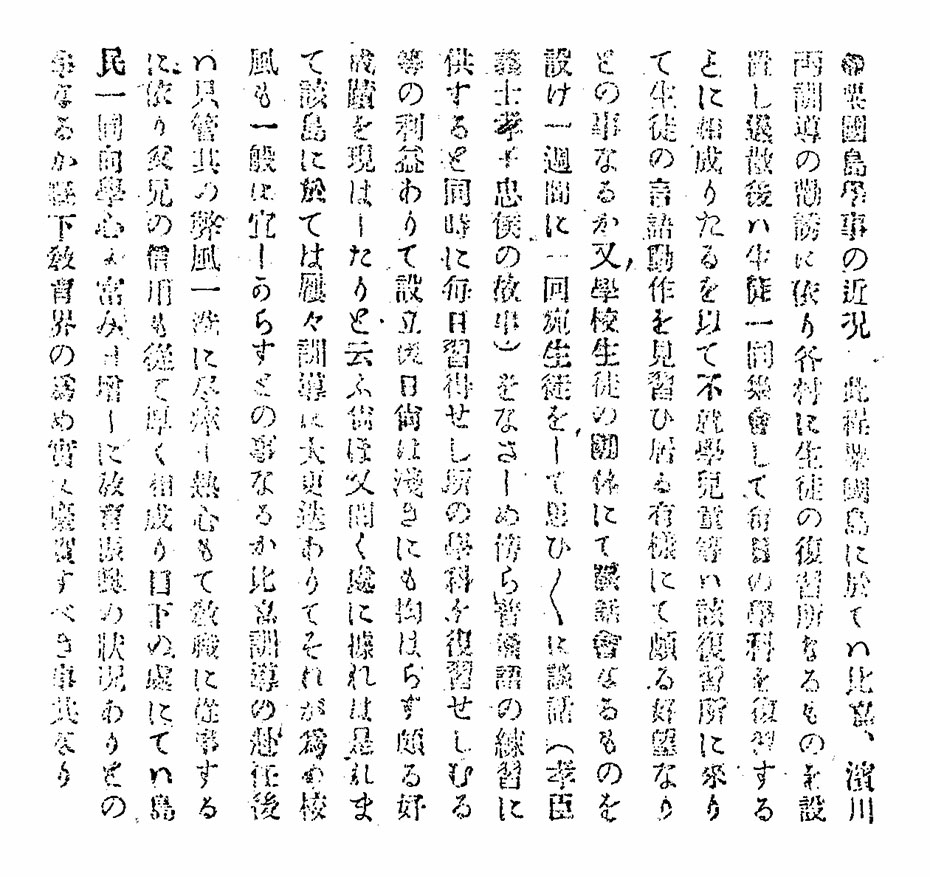 ●粟國島學事の近況　此程粟國島に於てハ比嘉、濱川
両訓導の勸誘に依り各村に生徒の復習所なるものを設
置し退散後ハ生徒一同集會して毎日の學科を復習する
とに相成りたるを以て不就學兒童等ハ該復習所に來り
て生徒の言語動作を見習ひ居る有様にて頗る好望なり
との事なるか又學校生徒の團体にて談話會なるものを
設け一週間に一回宛生徒をして思ひ〱に談話（孝臣
義士孝子忠僕の故事）をなさしめ傍ら普通語の練習に
供すると同時に毎日習得せし所の學科を復習せしむる
等の利益わりて設立以日尚は淺きにも拘はらず頗る好
成蹟を現はしたりと云ふ尚ほ又聞く處に據れは是れま
て該島に於ては屢々訓導に大更迭わりてそれが爲め校
風も一般に宜しからすとの事なるか比嘉訓導の赴任後
ハ只管其の弊風一洗に尽瘁し熱心もて敎職に從事する
に依り父兄の信用も從て厚く相成り目下の處にてハ島
民一同向學心に富み日增しに敎育振興の状況わりとの
事なるか縣下敎育界の爲め實に慶賀すべき事共なり